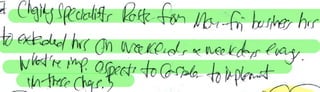 specialists from Mon-fri business hrs
to extended hrs on weekends & weekdays
what're imp. aspects to consider to implement
these